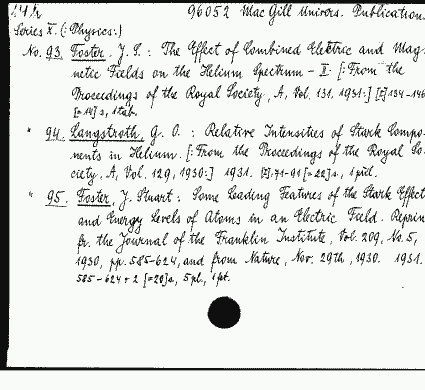 96052 Mac Gill Univers. Publication
Series X. (: Physics:)
No. 93. Foster, J. S.: The Effect of Combined Electric and Mag-
netic Fields on the Helium Spectrum - II. [: From the
Proceedings of the Royal Society, A, Vol. 131, 1931:] [S] 134-146
[= 14] s, 1 tab.
" 94. Langstroth, G. O.: Relative Intensities of Stark Compo-
nents in Helium. [: From the Proceedings of the Royal So-
ciety, A, Vol. 129, 1930:] 1931. [S]. 71-91 [= 22] s., 1 pl.
" 95. Foster, J. Stuart: Some Leading Features of the Stark Effect
and Energy Levels of Atoms in an Electric Field. Reprin
fr. the Journal of the Franklin Institute, Vol. 209, No. 5,
1930, pp. 585-624, and from Nature, Nov. 29th, 1930. 1931.
585-624 + 2 [= 20] s., 5 pl., 1 pt.